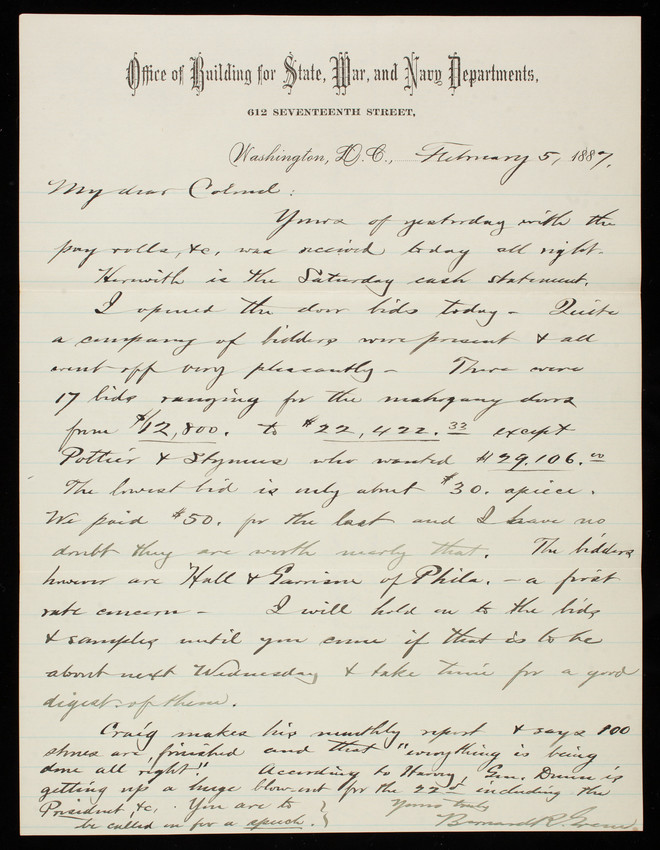 Office of Building for State, War, and Navy Departments,
612 SEVENTEENTH STREET,
Washington, D.C., February 5, 1887.
My dear Colonel:
Yours of yesterday with the
pay rolls, &c. was received today all right.
Herewith is the Saturday cash statement.
I opened the door bids today - Quite
a company of bidders were present & all
went off very pleasantly - There were
17 bids ranging for the mahogany doors
from $12,800. to $22,422.33 except
Pottier & Stymus who wanted $29,106.00
The lowest bid is only about $30. apiece.
We paid $50. for the last and I have no
doubt they are worth nearly that. The bidders
however are Hall & Garrison of Phila. - a first
rate concern - I will hold on to the bids
& samples until you come if that is to be
about next Wednesday & take time for a good
digest of them.
Craig makes his monthly report & says 800
stones are finished and that "everything is being
done all right". According to Harvey, Gen. Dunn is
getting up a huge blow-out for the 22d including the
President, &c. You are to
be called on for a speech.
Yours truly
Bernard R. Green.